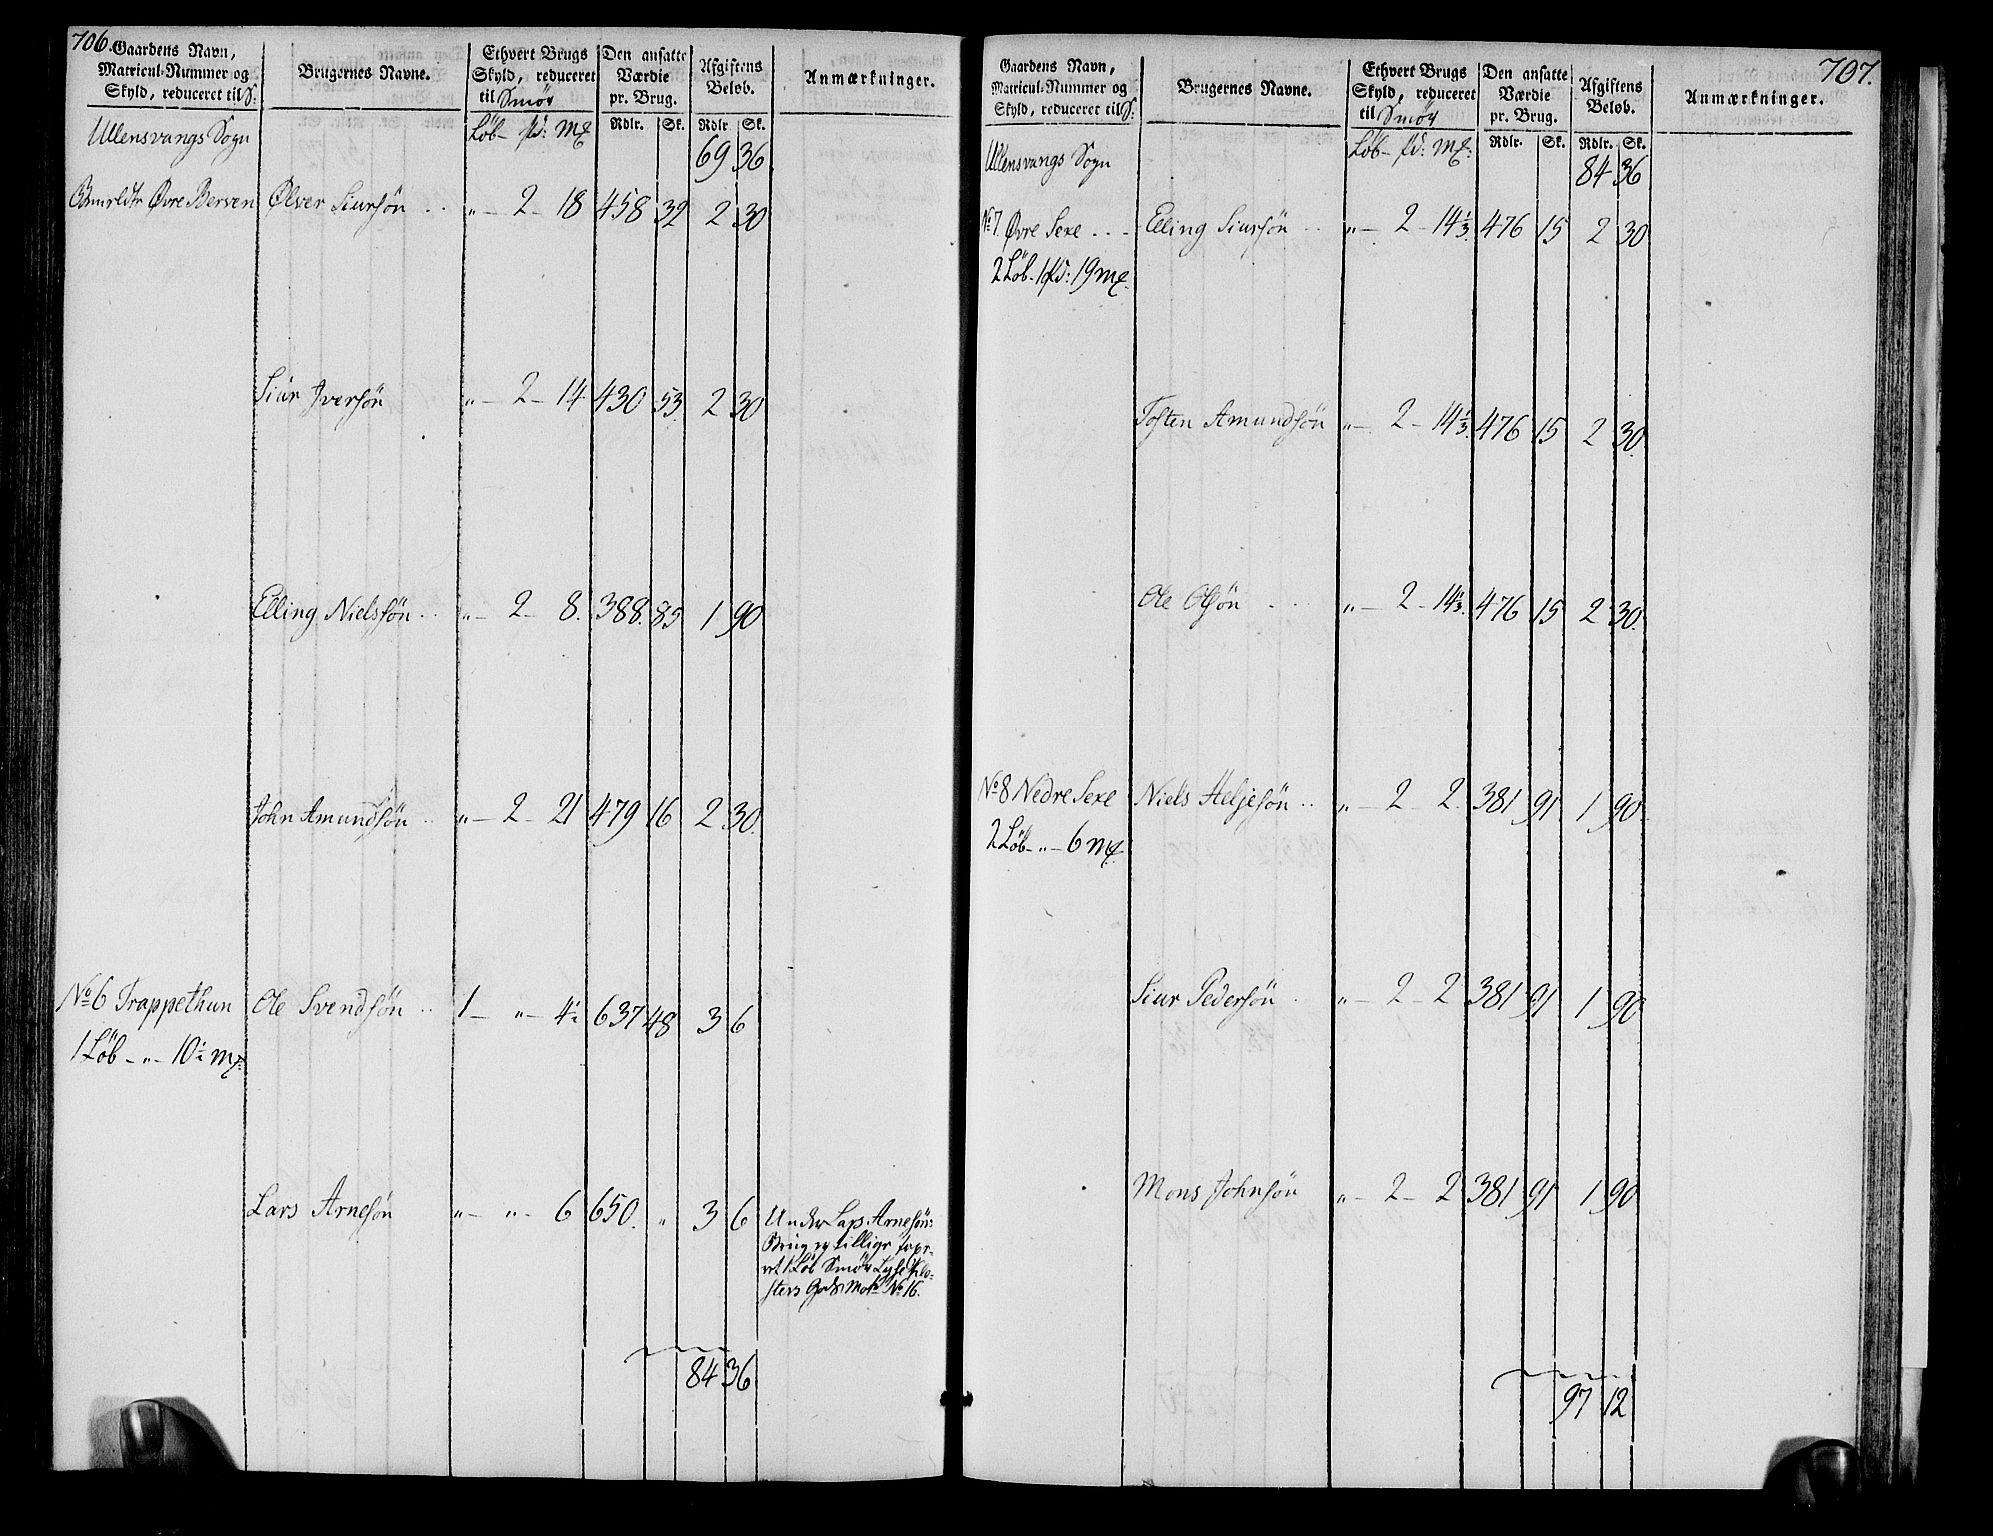 706.
Gaardens Navn,
Matricul-Nummer og
Skyld, reduceret til S:
Brugernes Navne.
Ethvert Brugs
Skyld, reduceret
til Smör
Den ansatte
Værdie
pr. Brug.
Afgiftens
Beløb.
Anmærkninger.
Ullensvangs Sogn
Löb - pd: M℔
Rdlr. Sk. Rdlr Sk.
69 36
Øvre Berven Ølver Siursön . . „ - 2 - 18 458 32 2 30
Siur Iversön „ - 2 - 14 430 53 2 30
Elling Nielssön . . „ - 2 - 8. 388. 85 1 90
John Amundsön . . „ - 2 - 21 479 16 2 30.
No 6 Trappethun Ole Svendsön . . 1 - „ - 4½ 637 48 3 6
1 Löb - „ - 10½ M℔.
Lars Arnesön „ - „ - 6 650. „ 3 6
Under Lars Arnesöns
Brug er tillige
1 Löb Smör Lyse Klo-
sters Gods No 16.
84 36
707.
Gaardens Navn,
Matricul-Nummer og
Skyld, reduceret til S:
Brugernes Navne.
Ethvert Brugs
Skyld, reduceret
til Smör
Den ansatte
Værdie
pr. Brug.
Afgiftens
Beløb.
Anmærkninger.
Ullensvangs Sogn
Löb - pd: M℔:
Rdlr. Sk. Rdlr. Sk.
84 36
No 7. Øvre Sexe . . . Elling Siursön . . „ - 2 - 14⅓. 476 15 2 30
2 Löb - 1 pd: 19 M℔.
Tosten Amundsön „ - 2 - 14⅓. 476 15 2 30.
Ole Olsön . . . „ - 2 - 14⅓. 476 15 2 30.
No 8 Nedre Sexe Niels Heljesön . . „ - 2 - 2. 381 91 1 90.
2 Löb - „ - 6 M℔.
Siur Pedersön . „ - 2 - 2 381 91 1 90
Mons Johnsön „ - 2 - 2 381 91 1 90
97 12